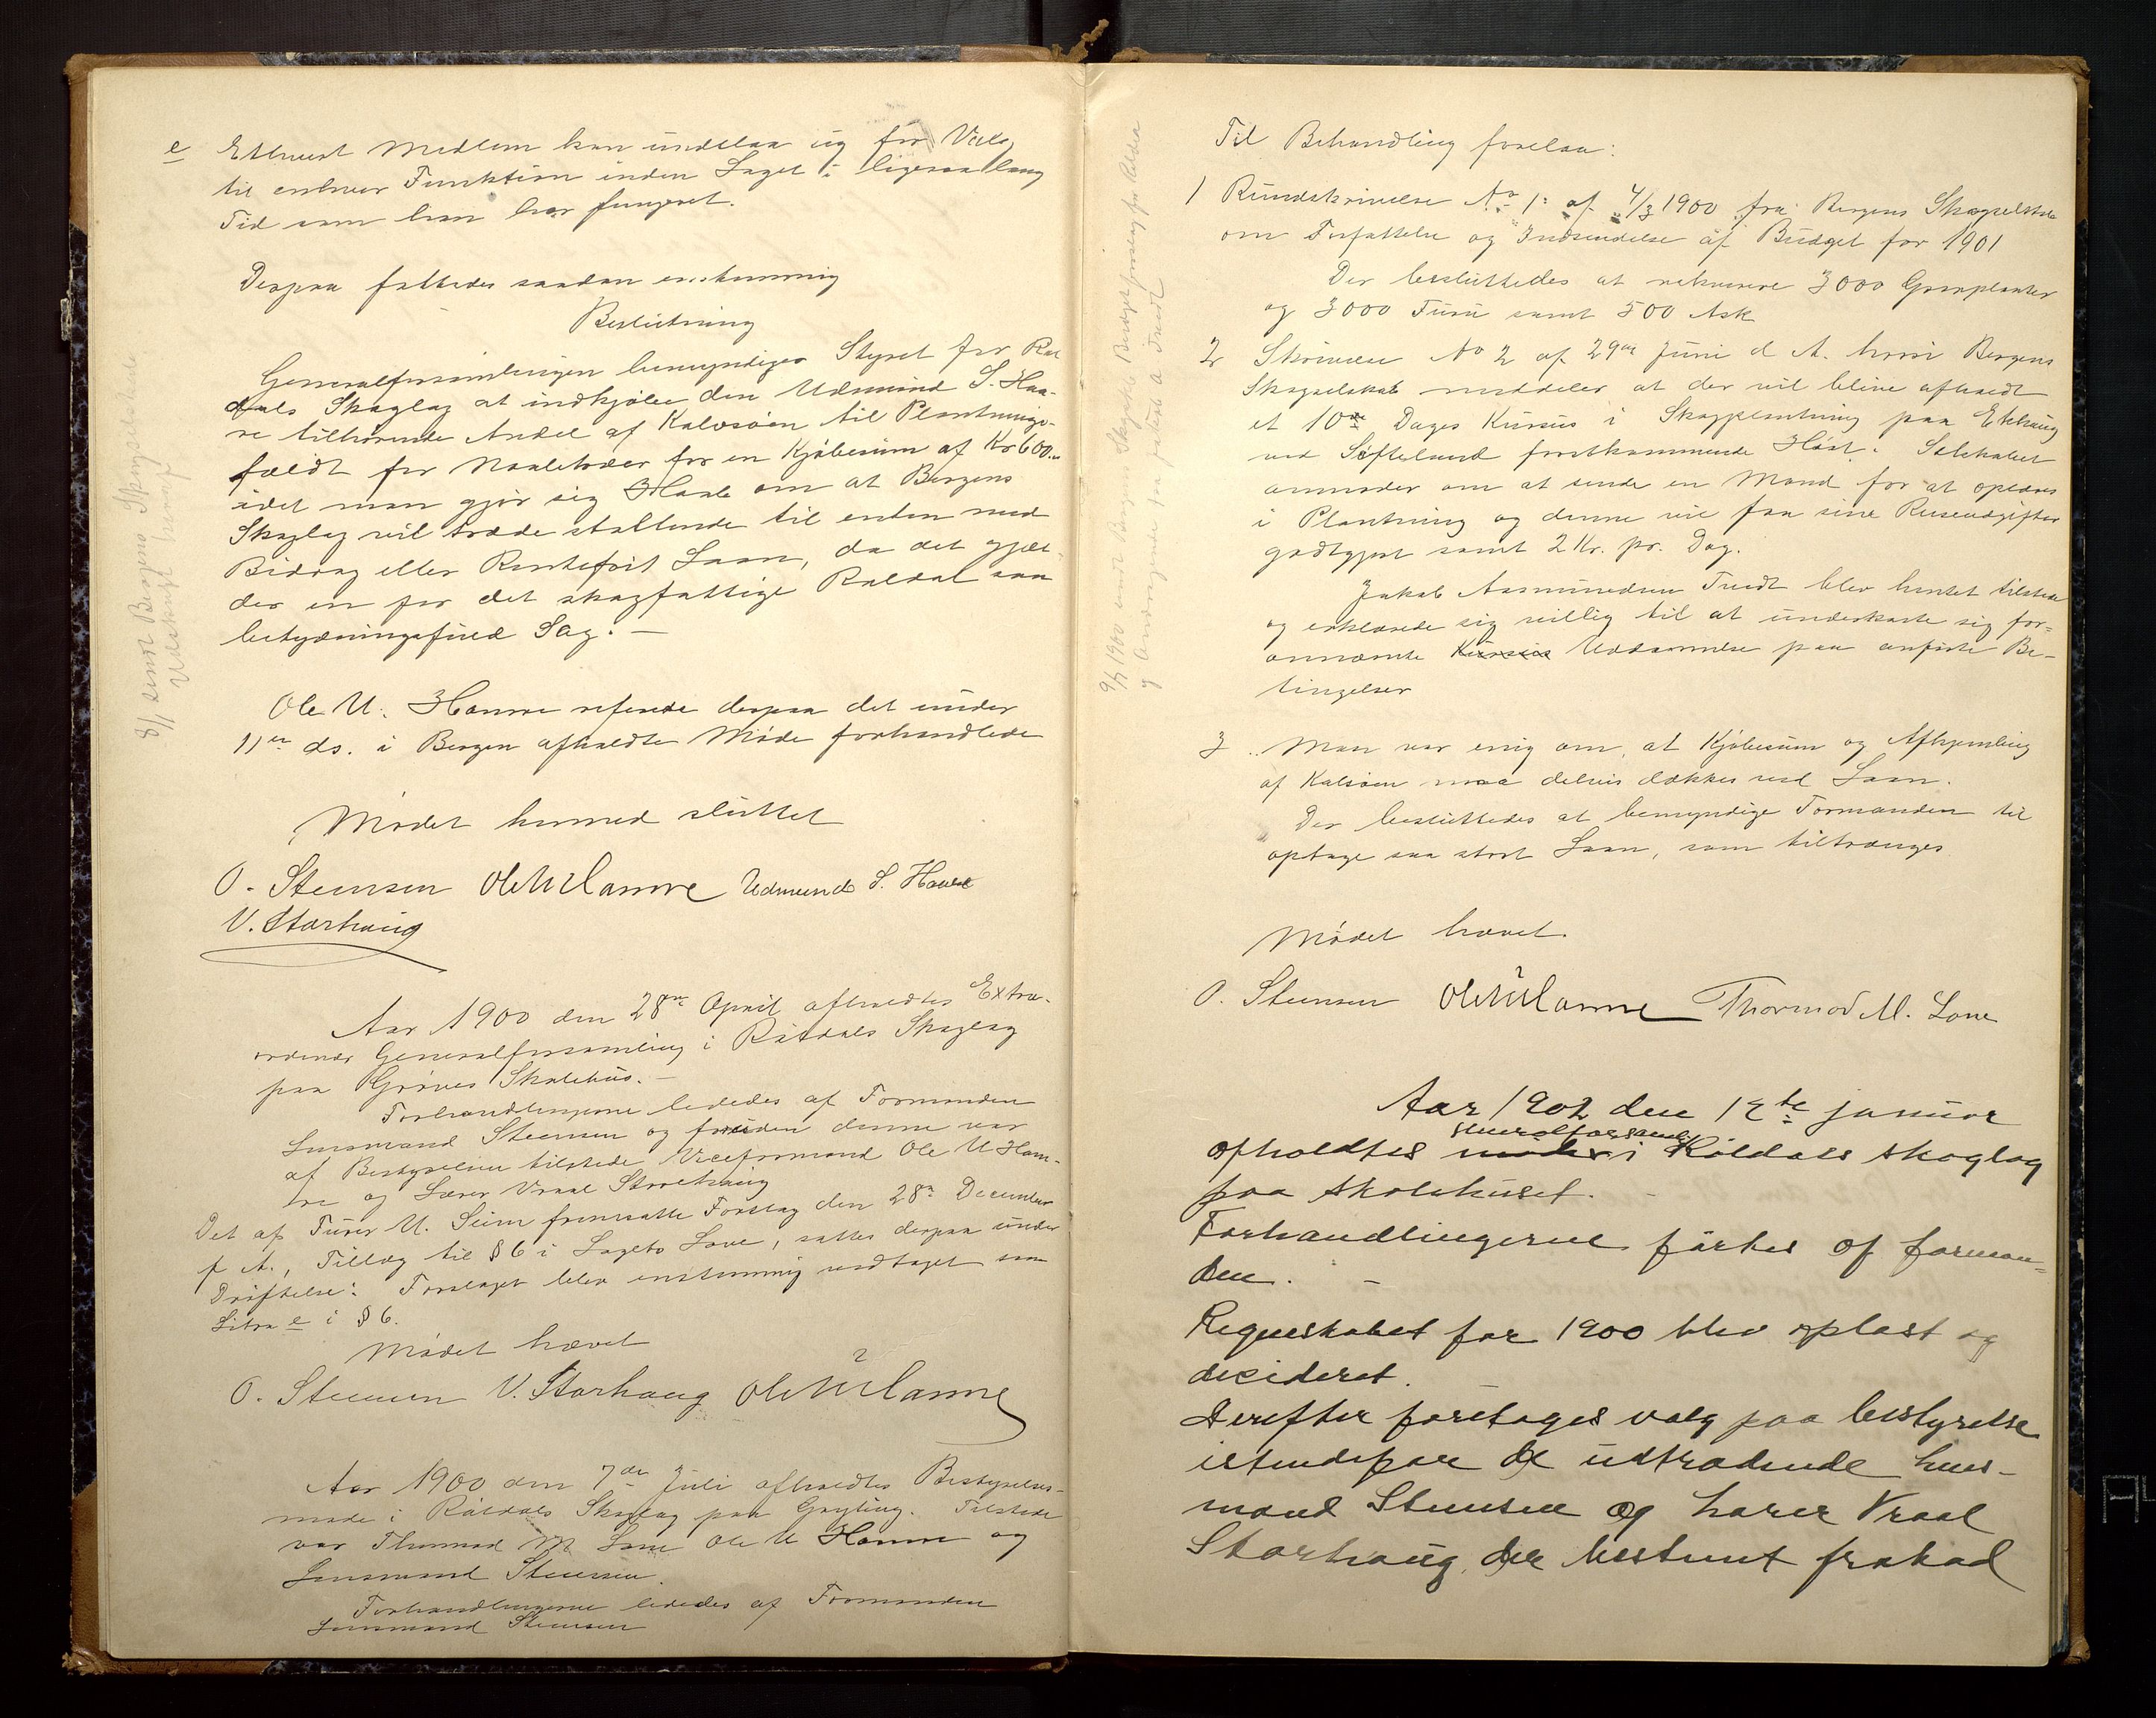 e Ethvert Medlem kan undslaa sig for Valg
til enhver Funktion inden Laget i ligesaa lang
Tid som han har fungeret.
Derpaa fattedes saadan enstemmig
Beslutning
Generalforsamlingen bemyndiger Styret for Røl
dals Skoglag at indkjøbe den Udmund S. Haa-
re tilhørende Andel af Kalvsøen til Plantnings-
fældt for Naaletræer for en Kjøbesum af Kr 600.-
idet man gjør sig Haab om at Bergens
Skoglag vil træde støttende til enten med
Bidrag eller Rentefrit Laan, da det gjæl-
der en for det skogfattige Røldal saa
betydningsfuld Sag. —
Ole U. Hamre refererede derpaa det under
11te ds. i Bergen afholdte Møde forhandlede
Mødet hermed sluttet
O. Steensen Ole U Hamre Udmund S. Haare
V. Storhaug
8/1 sendt Bergens Skogselskab
Udskrift heraf
Aar 1900 den 28de April afholdtes Extra-
ordinær Generalforsamling i Røldals Skoglag
paa Grønes Skolehus. —
Forhandlingerne lededes af Formanden
Lensmand Steensen og foruden denne var
af Bestyrelsen tilstede Viceformand Ole U Ham-
re og Lærer Vraal Storehaug
Det af Turer U. Seim fremsatte Forslag den 28de December
f A., Tillæg til § 6 i Lagets Love, sattes derpaa under
Drøftelse. Forslaget blev enstemmig vedtaget som
Litra e i § 6.
Mødet hævet
O. Steensen V. Storhaug Ole U Hamre
Aar 1900 den 7de Juli afholdtes Bestyrelses-
møde i Røldals Skoglag paa Gryting. Tilstede
var Thormod M Lone Ole U Hamre og
Lensmand Steensen.
Forhandlingerne lededes af Formanden
Lensmand Steensen
Til Behandling forelaa:
1 Rundskrivelse No 1 af 4/3 1900 fra Bergens Skogselskab
om Forfattelse og Indsendelse af Budget for 1901
Der besluttedes at rekvirere 3000 Granplanter
og 3000 Furu samt 500 Ask
2 Skrivelse No 2 af 29de Juni d A. hvori Bergens
Skogselskab meddeler at der vil blive afholdt
et 10de Dages Kursus i Skogplantning paa Ekhaug
ved Søfteland førstkommende Høst. Selskabet
anmoder om at sende en Mand for at oplæres
i Plantning og denne vil faa sine Reiseudgifter
godtgjort samt 2 Kr. pr. Dag.
Jakob Aasmundsen Tvedt blev hentet tilstede
og erklærede sig villig til at underkaste sig for-
annævnte Kursus Uddannelse paa anførte Be-
tingelser
3 Man var enig om, at Kjøbesum og Afhjemling
af Kalsøen maa delvis dækkes ved Laan.
Der besluttedes at bemyndige Formanden til
optage saa stort Laan, som tiltrænges
Mødet hævet.
O. Steensen Ole U Hamre Thormod M. Lone
9/7 1900 sendt Bergens Skogselsk. Budgetforslag
og Andragende fra Jakob A Tvedt
Aar 1902 den 12te januar
afholdtes møde generalforsamling i Røldals skoglag
paa skolehuset. —
Forhandlingerne førtes af forman=
den. —
Regneskabet for 1900 blev oplæst og
decideret. —
Derefter foretoges valg paa bestyrelse
istedenfor de udtrædende lens-
mand Steensen og lærer Vraal
Storhaug, der bestemt frabad